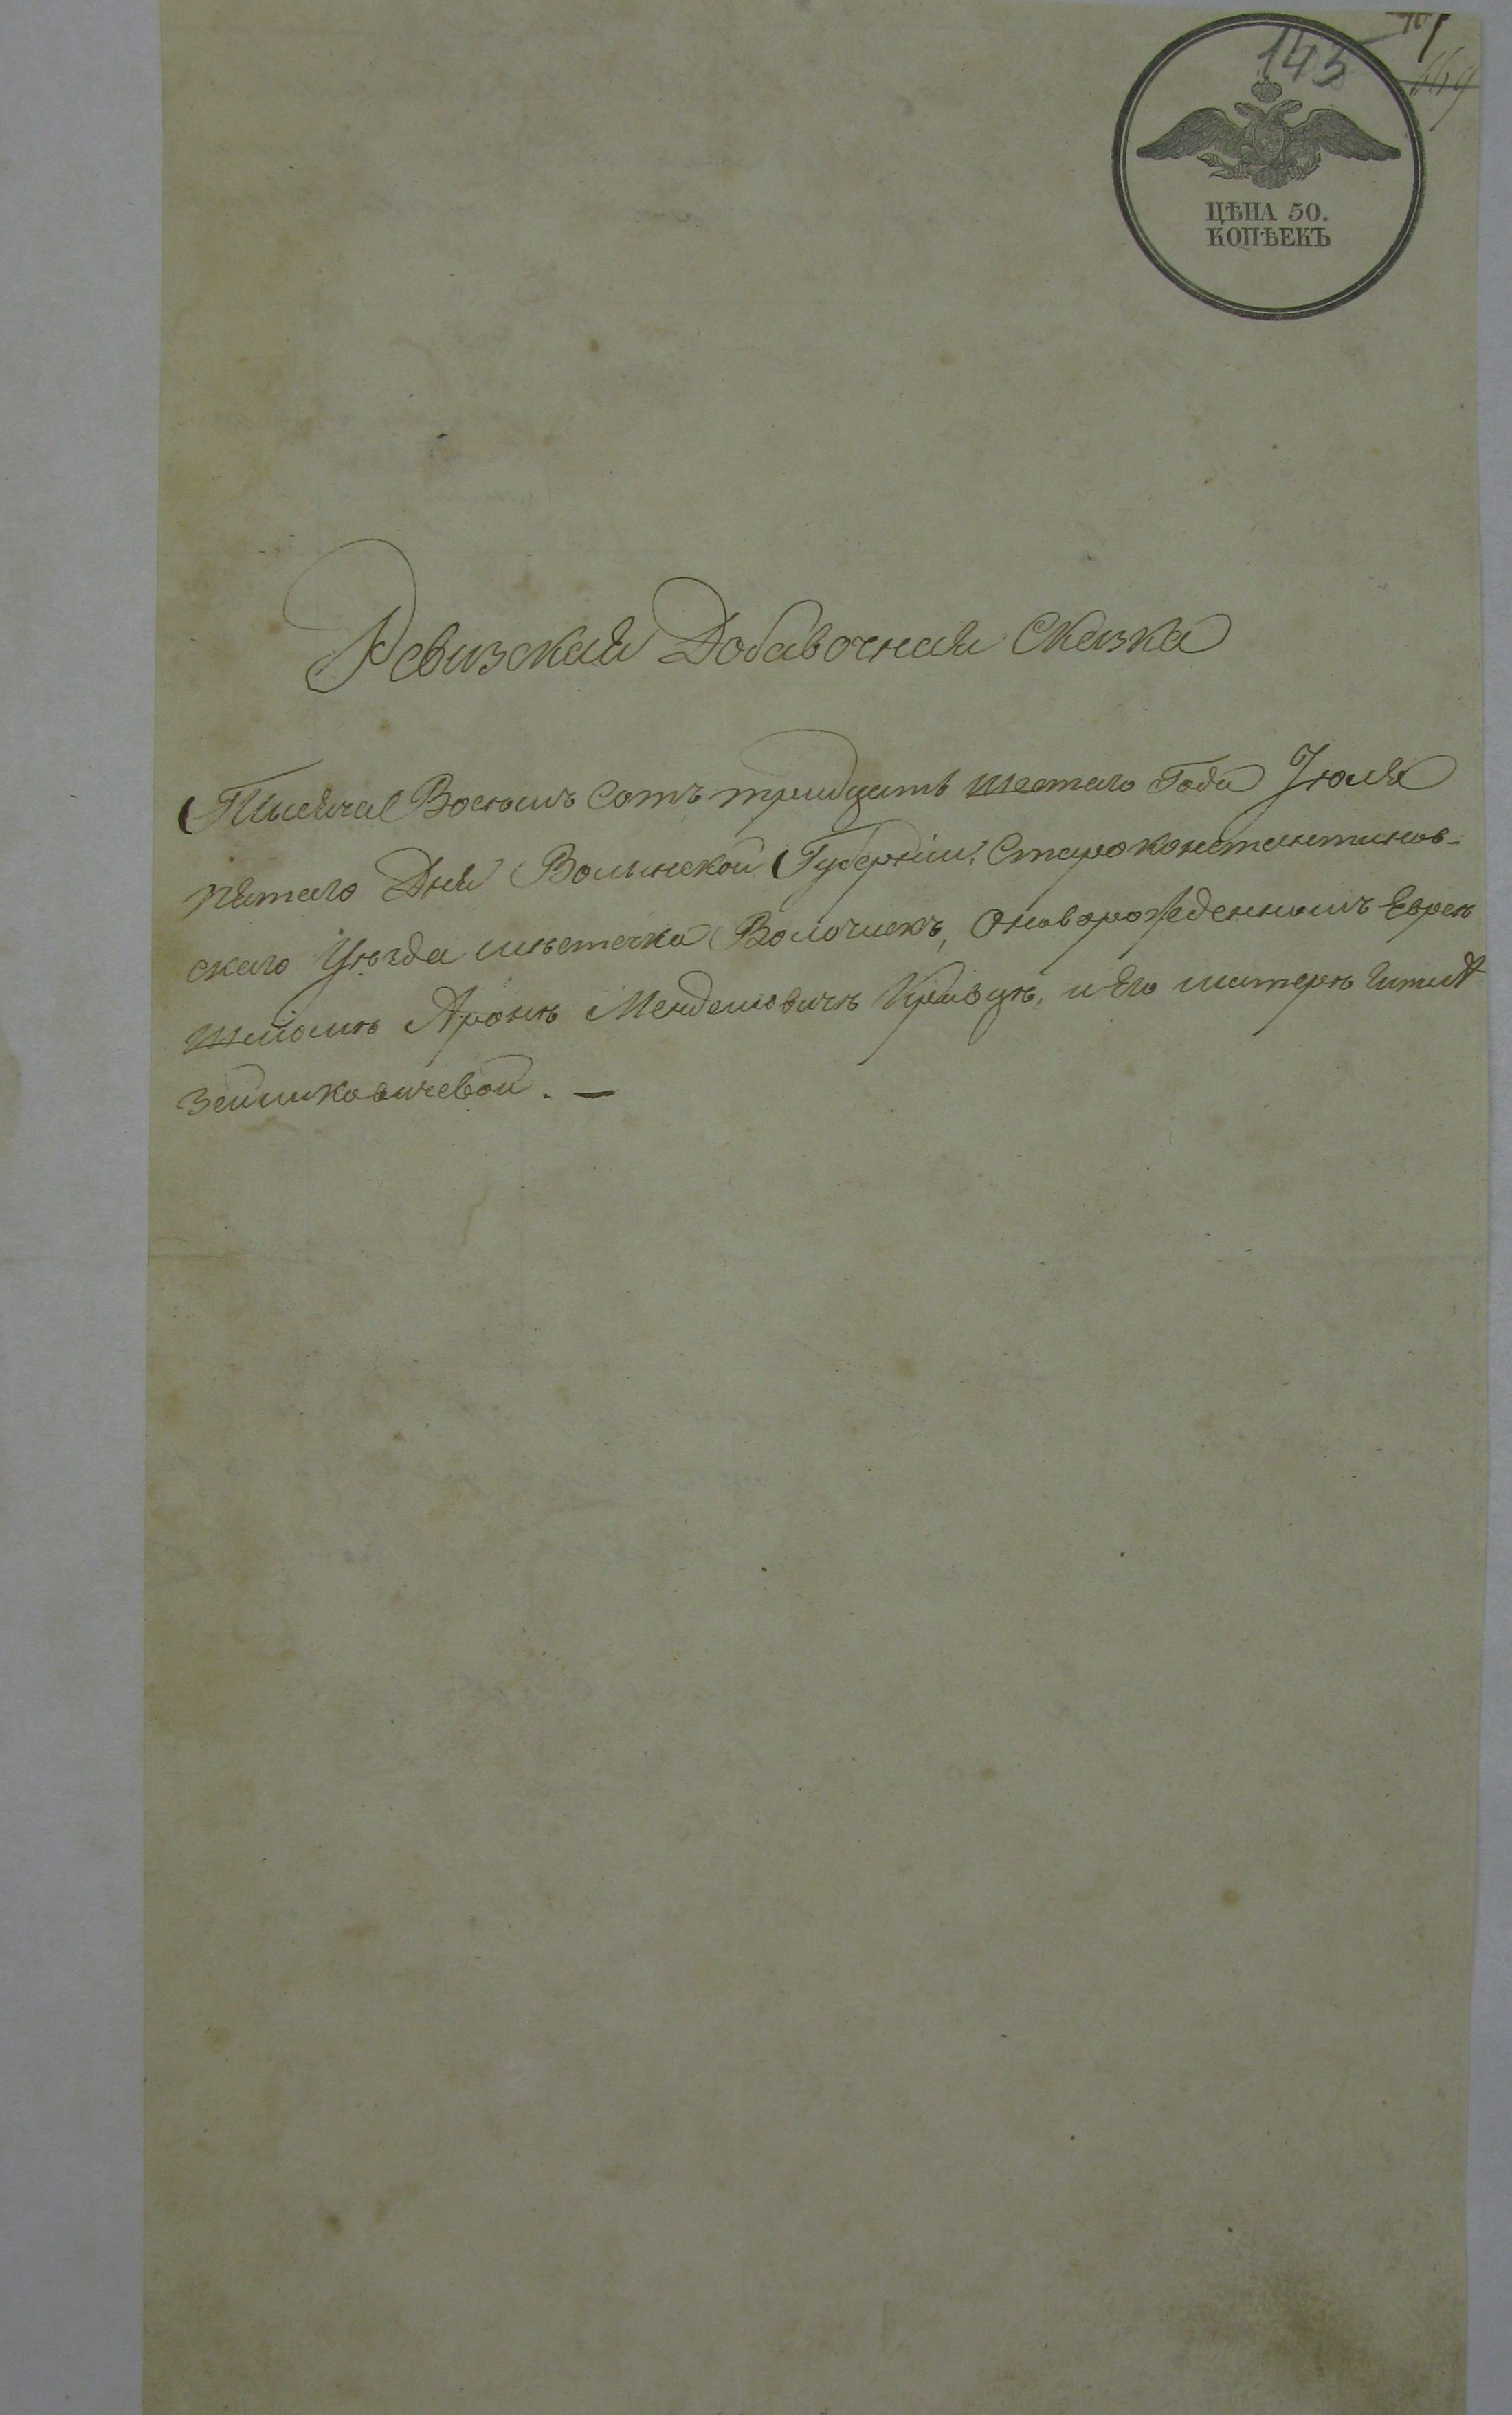 145
169
ЦѢНА 50.
КОПѢЕКЪ
Ревизская Добавочная Сказка
Тысяча Восемь Сотъ тридцать шестаго Года Іюля
пятаго Дня Волынской Губерніи, Староконстантинов-
скаго Уѣзда мѣстечка Волочискъ, Оноворожденномъ Евреѣ
Шліомѣ Аронѣ Менделовичѣ Кривцѣ, и Его матерѣ
Зеиликовичевой. —